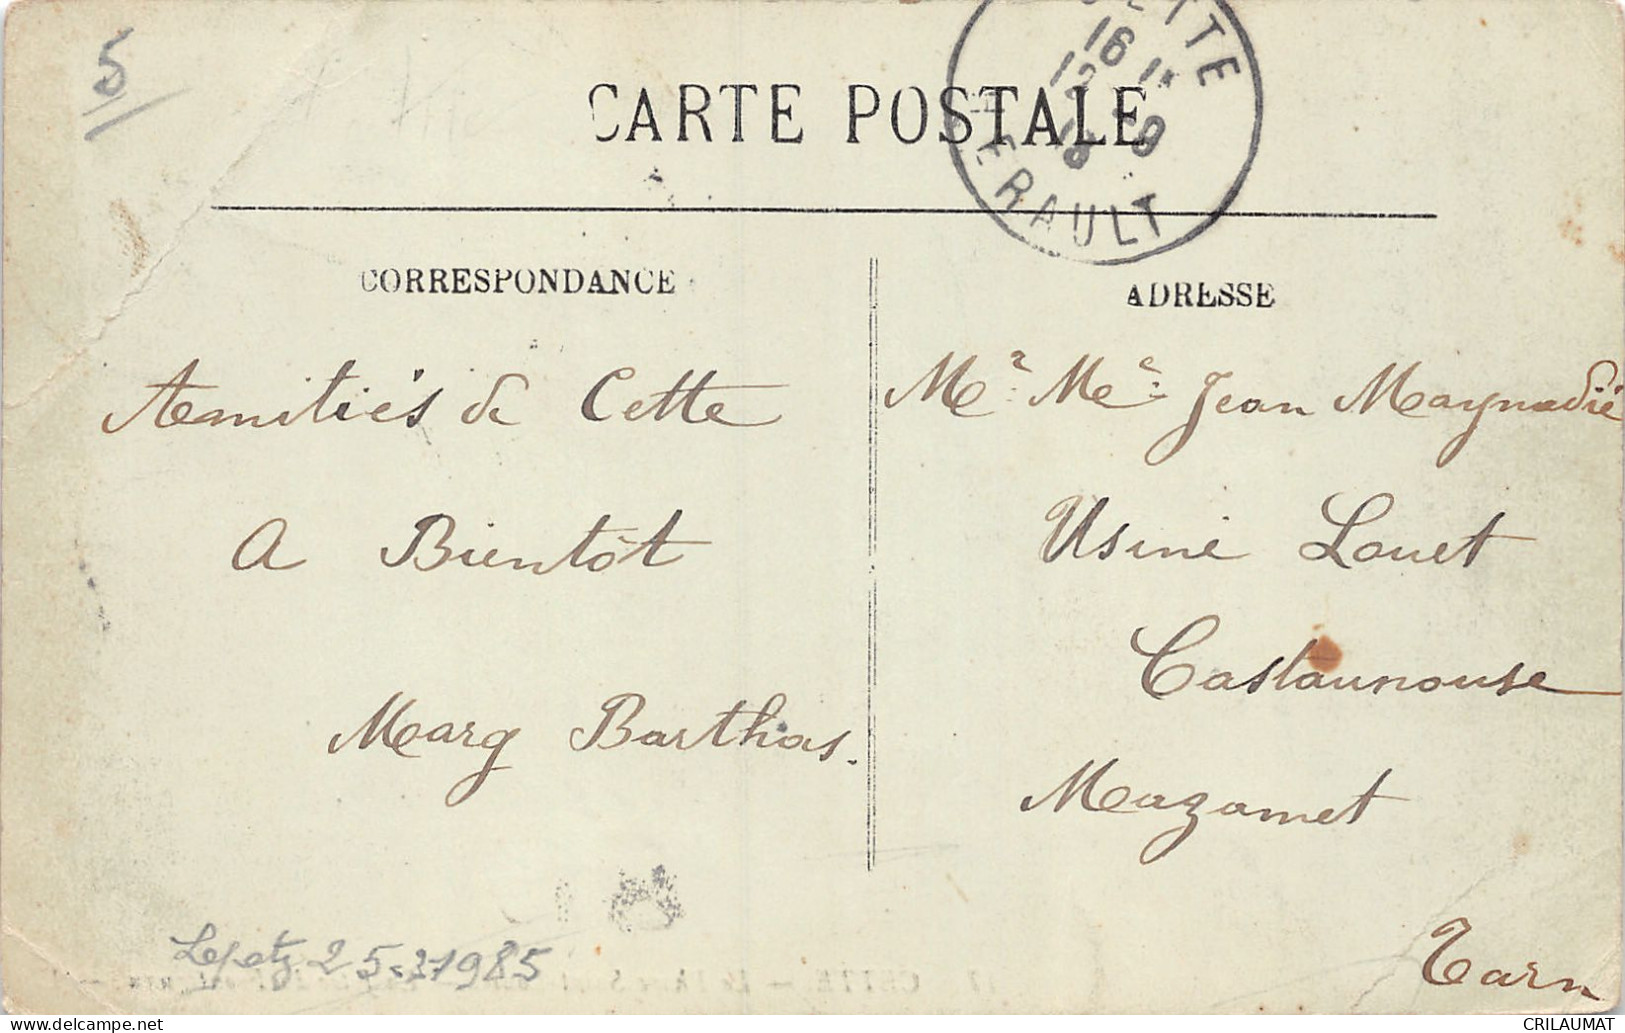 5
CARTE POSTALE
CETTE
16 1
12 -9
18
HERAULT
CORRESPONDANCE
ADRESSE
Amitiés de Cette
A Bientôt
Marg Barthas.
Mr. Me. Jean Maynadié
Usine Louet
Castaunouse
Mazamet
Tarn
25-3-1985
CETTE. —
CRILAUMAT